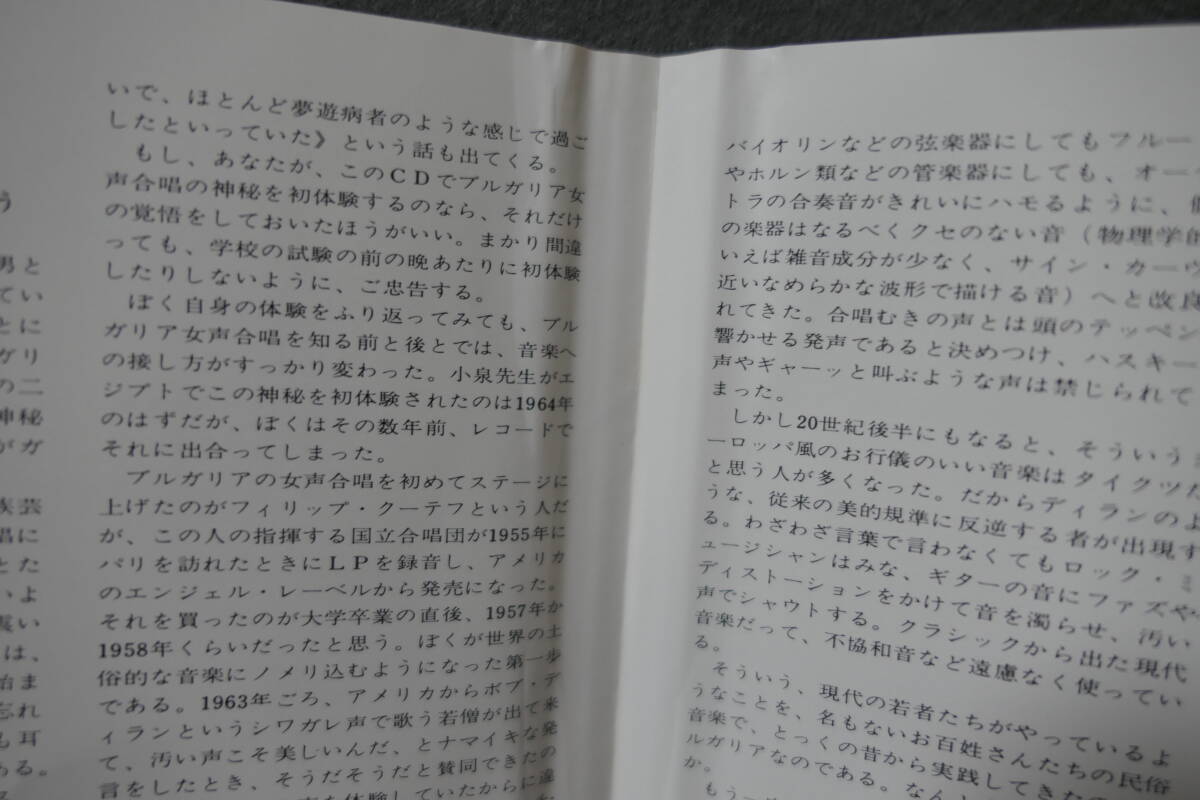 う
男と
てい
とに
ガリ
の二
神秘
がガ
族芸
唱に
とた
いよ
震い
は、
始ま
忘れ
も耳
ある。
いで、ほとんど夢遊病者のような感じで過ご
したといっていた》という話も出てくる。
もし、あなたが、このＣＤでブルガリア女
声合唱の神秘を初体験するのなら、それだけ
の覚悟をしておいたほうがいい。まかり間違
っても、学校の試験の前の晩あたりに初体験
したりしないように、ご忠告する。
ぼく自身の体験をふり返ってみても、ブル
ガリア女声合唱を知る前と後とでは、音楽へ
の接し方がすっかり変わった。小泉先生がエ
ジプトでこの神秘を初体験されたのは1964年
のはずだが、ぼくはその数年前、レコードで
それに出合ってしまった。
ブルガリアの女声合唱を初めてステージに
上げたのがフィリップ・クーテフという人だ
が、この人の指揮する国立合唱団が1955年に
パリを訪れたときにＬＰを録音し、アメリカ
のエンジェル・レーベルから発売になった。
それを買ったのが大学卒業の直後、1957年か
1958年くらいだったと思う。ぼくが世界の土
俗的な音楽にノメリ込むようになった第一歩
である。1963年ごろ、アメリカからボブ・デ
ィランというシワガレ声で歌う若僧が出て来
て、汚い声こそ美しいんだ、とナマイキな発
言をしたとき、そうだそうだと賛同できたの
を体験していたからに違
バイオリンなどの弦楽器にしてもフルー
やホルン類などの管楽器にしても、オー
トラの合奏音がきれいにハモるように、個
の楽器はなるべくクセのない音（物理学的
いえば雑音成分が少なく、サイン・カーヴ
近いなめらかな波形で描ける音）へと改良
れてきた。合唱むきの声とは頭のテッペン
響かせる発声であると決めつけ、ハスキー
声やギャーッと叫ぶような声は禁じられて
まった。
しかし20世紀後半にもなると、そういう
ーロッパ風のお行儀のいい音楽はタイクツだ
と思う人が多くなった。だからディランのよ
うな、従来の美的規準に反逆する者が出現す
る。わざわざ言葉で言わなくてもロック・ミ
ュージシャンはみな、ギターの音にファズや
ディストーションをかけて音を濁らせ、汚い
声でシャウトする。クラシックから出た現代
音楽だって、不協和音など遠慮なく使ってい
る。
そういう、現代の若者たちがやっているよ
うなことを、名もないお百姓さんたちの民俗
音楽で、とっくの昔から実践してきたの
ルガリアなのである。なんと
か。
もう一